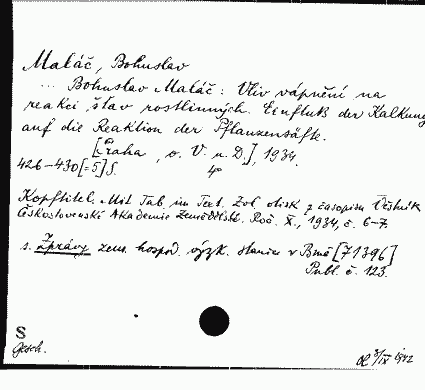 Maláč, Bohuslav
... Bohuslav Maláč: Vliv vápnění na
reakci šťav rostlinných. Einfluß der Kalkung
auf die Reaktion der Pflanzensäfte.
[Praha, o. V. u. D.], 1934.
426-430 [=5] S. 4°
Kopftitel. Mit Tab. im Text. Zvl. otisk z časopisu Věstník
Československé Akademie Zemědělské. Roč. X., 1934, č. 6-7.
s. Zprávy zem. hospod. výzk. stanic v Brně [71396]
Publ. č. 123.
S
Gesch.